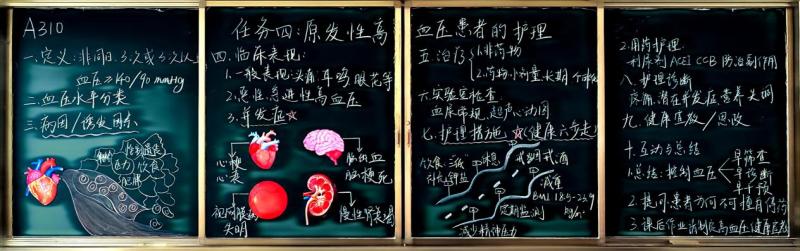 A310
任务四:原发性高
血压患者的护理
一、定义:非同日、3次或3次以上
血压≥140/90 mmHg
二、血压水平分类
三、病因/诱发因素
遗传
压力
饮食
肥胖
四、临床表现:
1.一般表现:头痛、耳鸣、眼花等
2.恶性、急进性高血压
3.并发症☆
心梗
心衰
脑出血
脑梗死
视网膜病
失明
慢性肾衰竭
五、治疗
1.非药物
2.药物:小剂量、长期、个体化
六、实验室检查
血尿常规、超声心动图
七、护理措施☆(健康六步走)
饮食:三减
补充钾盐
休息
戒烟戒酒
减重
BMI 18.5-23.9
kg/m²
定期监测
减少精神压力
2.用药护理
利尿剂 ACEI CCB 防治副作用
八、护理诊断
疼痛、潜在并发症、营养失调
九、健康宣教/思政
十、互动与总结
1.总结:控制血压
早筛查
早诊断
早干预
2.提问:患者为何不可擅自停药
3.课后作业:请制定高血压健康宣教